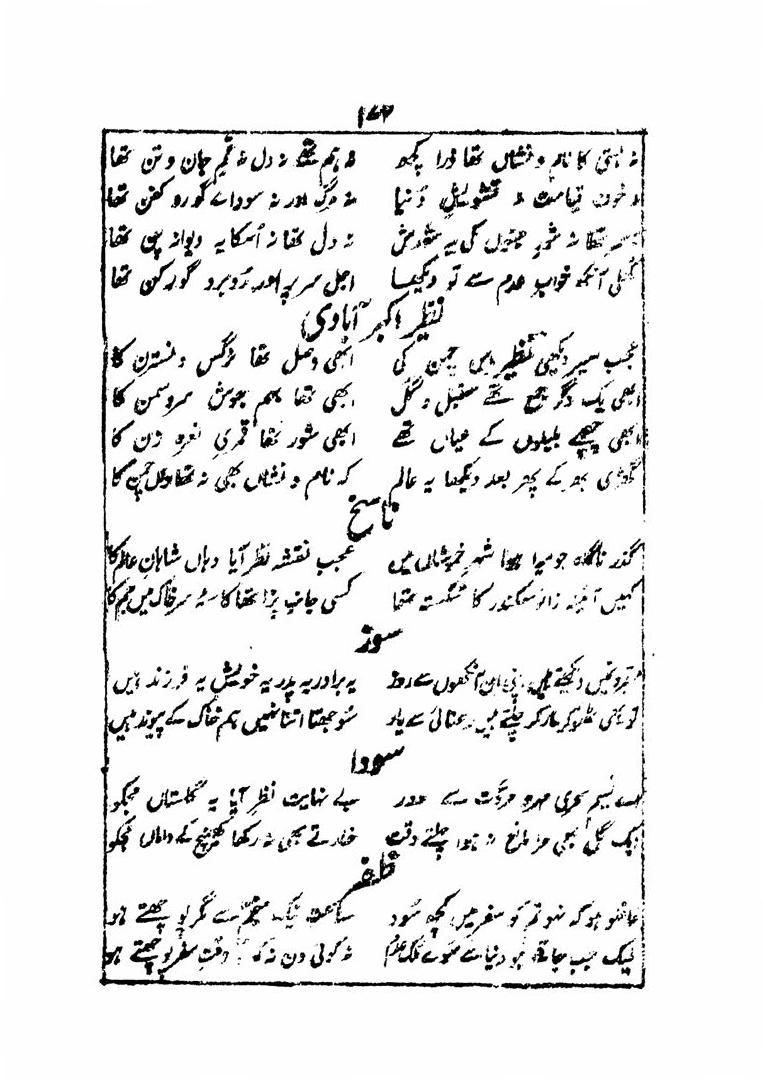 ۱۷۲
نہ ہستی کا نام و نشاں تھا ذرا کچھ نہ ہم تھے نہ دل نہ غم جان و تن تھا
نہ خوف قیامت نہ تشویش دنیا نہ مرگ اور نہ سوداے گور و کفن تھا
تھا نہ شور جنوں کی یہ شورش نہ دل تھا نہ اسکا یہ دیوانہ پن تھا
کھلی آنکھ خواب عدم سے تو دیکھا اجل سر پہ اور روبرو گورکن تھا
نظیر اکبر آبادی
عجب سیر دیکھی نظیر اس چمن کی ابھی وصل تھا نرگس و نسترن کا
ابھی یک دگر جمع تھے سنبل و گل ابھی تھا بہم جوش سرو سمن کا
ابھی چہچہے بلبلوں کے عیاں تھے ابھی شور تھا قمری نعرہ زن کا
گھڑی بھر کے پھر بعد دیکھا یہ عالم کہ نام و نشاں بھی نہ تھا واں چمن کا
ناسخ
گذر ناگاہ جو میرا ہوا شہر خموشاں میں عجب نقشہ نظر آیا وہاں شاہان عالم کا
کہیں آئینہ زانو سکندر کا شکستہ تھا کسی جانب پڑا تھا کاسہ سر خاک میں جم کا
سوز
دیکھتے ہیں اپنی ان آنکھوں سے روز یہ برادر یہ پدر یہ خویش یہ فرزند ہیں
تو بھی ٹھوکر مار کر چلتے ہیں رعنائی سے یار سوجھتا اتنا نہیں ہم خاک کے پیوند ہیں
سودا
اے نسیم سحری مہر و مروت سے دور بے نہایت نظر آیا یہ گلستاں مجکو
ایک گل بھی مرا مانع نہ ہوا چلتے وقت خار نے بھی نہ رکھا کھینچ کے داماں مجکو
ظفر
غافلو ہو کہ نہ ہو تم کو سفر میں کچھ سود ساعت نیک منجم سے مگر پوچھتے ہو
لیک جب جاتے ہو دنیا سے سوے ملک عدم نہ کوئی دن نہ وقت سفر پوچھتے ہو